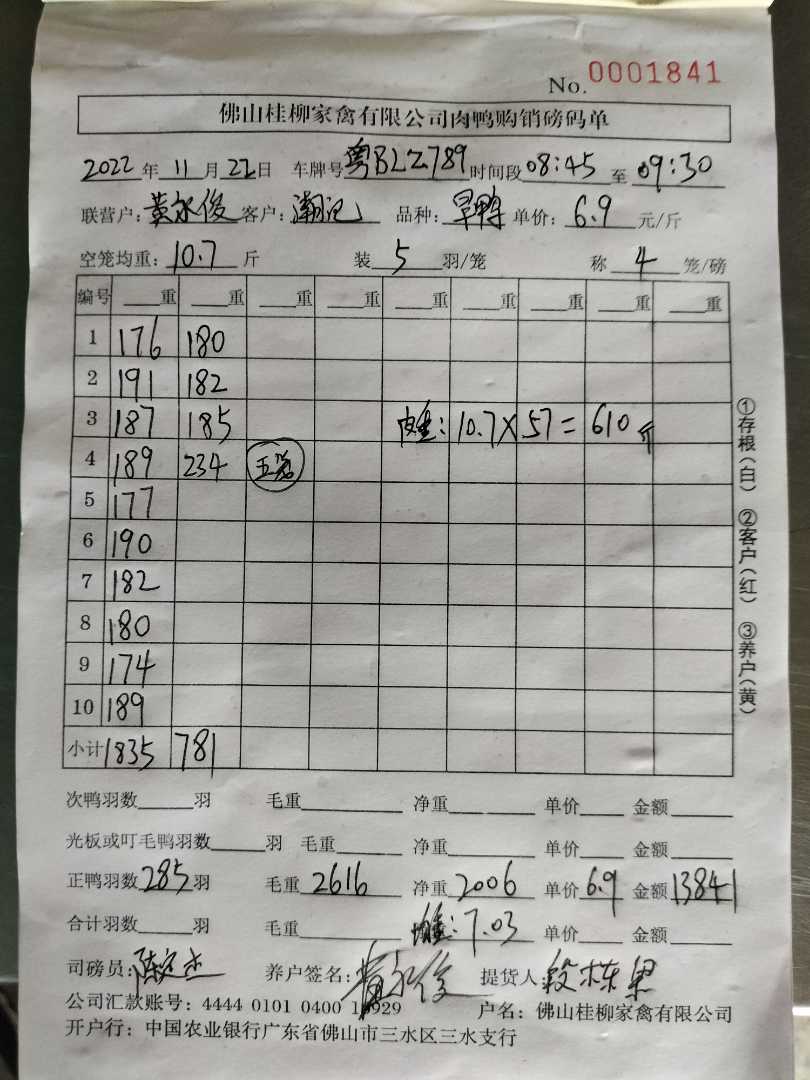 No. 0001841
佛山桂柳家禽有限公司肉鸭购销磅码单
2022年11月22日 车牌号粤BLZ789时间段08:45至09:30
联营户:黄永俊 客户:潮记 品种:旱鸭 单价:6.9元/斤
空笼均重:10.7斤 装5羽/笼 称4笼/磅
编号 重 重 重 重 重 重 重 重 重
1 176 180
2 191 182
3 187 185 皮重:10.7×57=610斤
4 189 234 五笼
5 177
6 190
7 182
8 180
9 174
10 189
小计 1835 781
①存根(白) ②客户(红) ③养户(黄)
次鸭羽数 羽 毛重 净重 单价 金额
光板或叮毛鸭羽数 羽 毛重 净重 单价 金额
正鸭羽数285羽 毛重2616 净重2006 单价6.9 金额13841
合计羽数 羽 毛重 均重:7.03 单价 金额
司磅员: 养户签名:黄永俊 提货人:
公司汇款账号:4444 0101 0400 1 929 户名:佛山桂柳家禽有限公司
开户行:中国农业银行广东省佛山市三水区三水支行